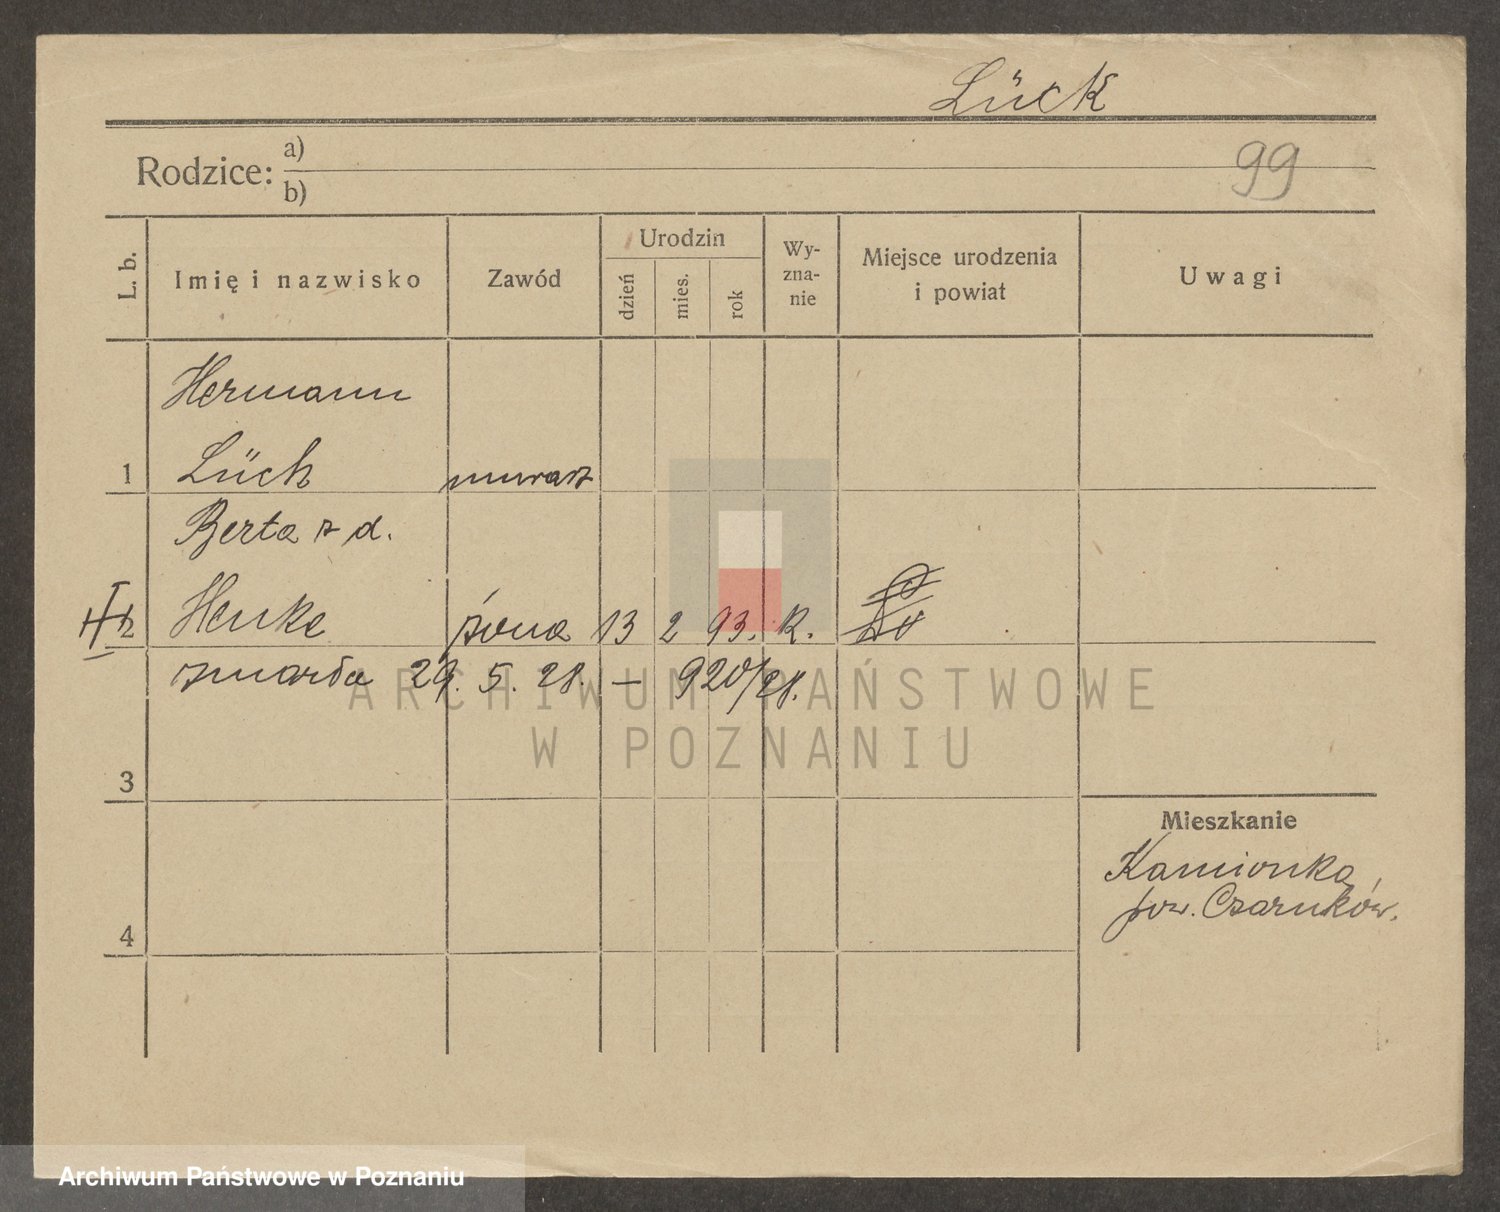 Lück
Rodzice: a)
b)
99
L. b.
Imię i nazwisko
Zawód
Urodzin
dzień
mies.
rok
Wy-
zna-
nie
Miejsce urodzenia
i powiat
Uwagi
Hermann
1 Lück murarz
Berta z d.
2 Henke żona 13 2 93. K.
zmarła 29. 5. 28. — 920/28.
3
4
Mieszkanie
Kamionka,
pow. Czarnków.
ARCHIWUM PAŃSTWOWE
W POZNANIU
Archiwum Państwowe w Poznaniu